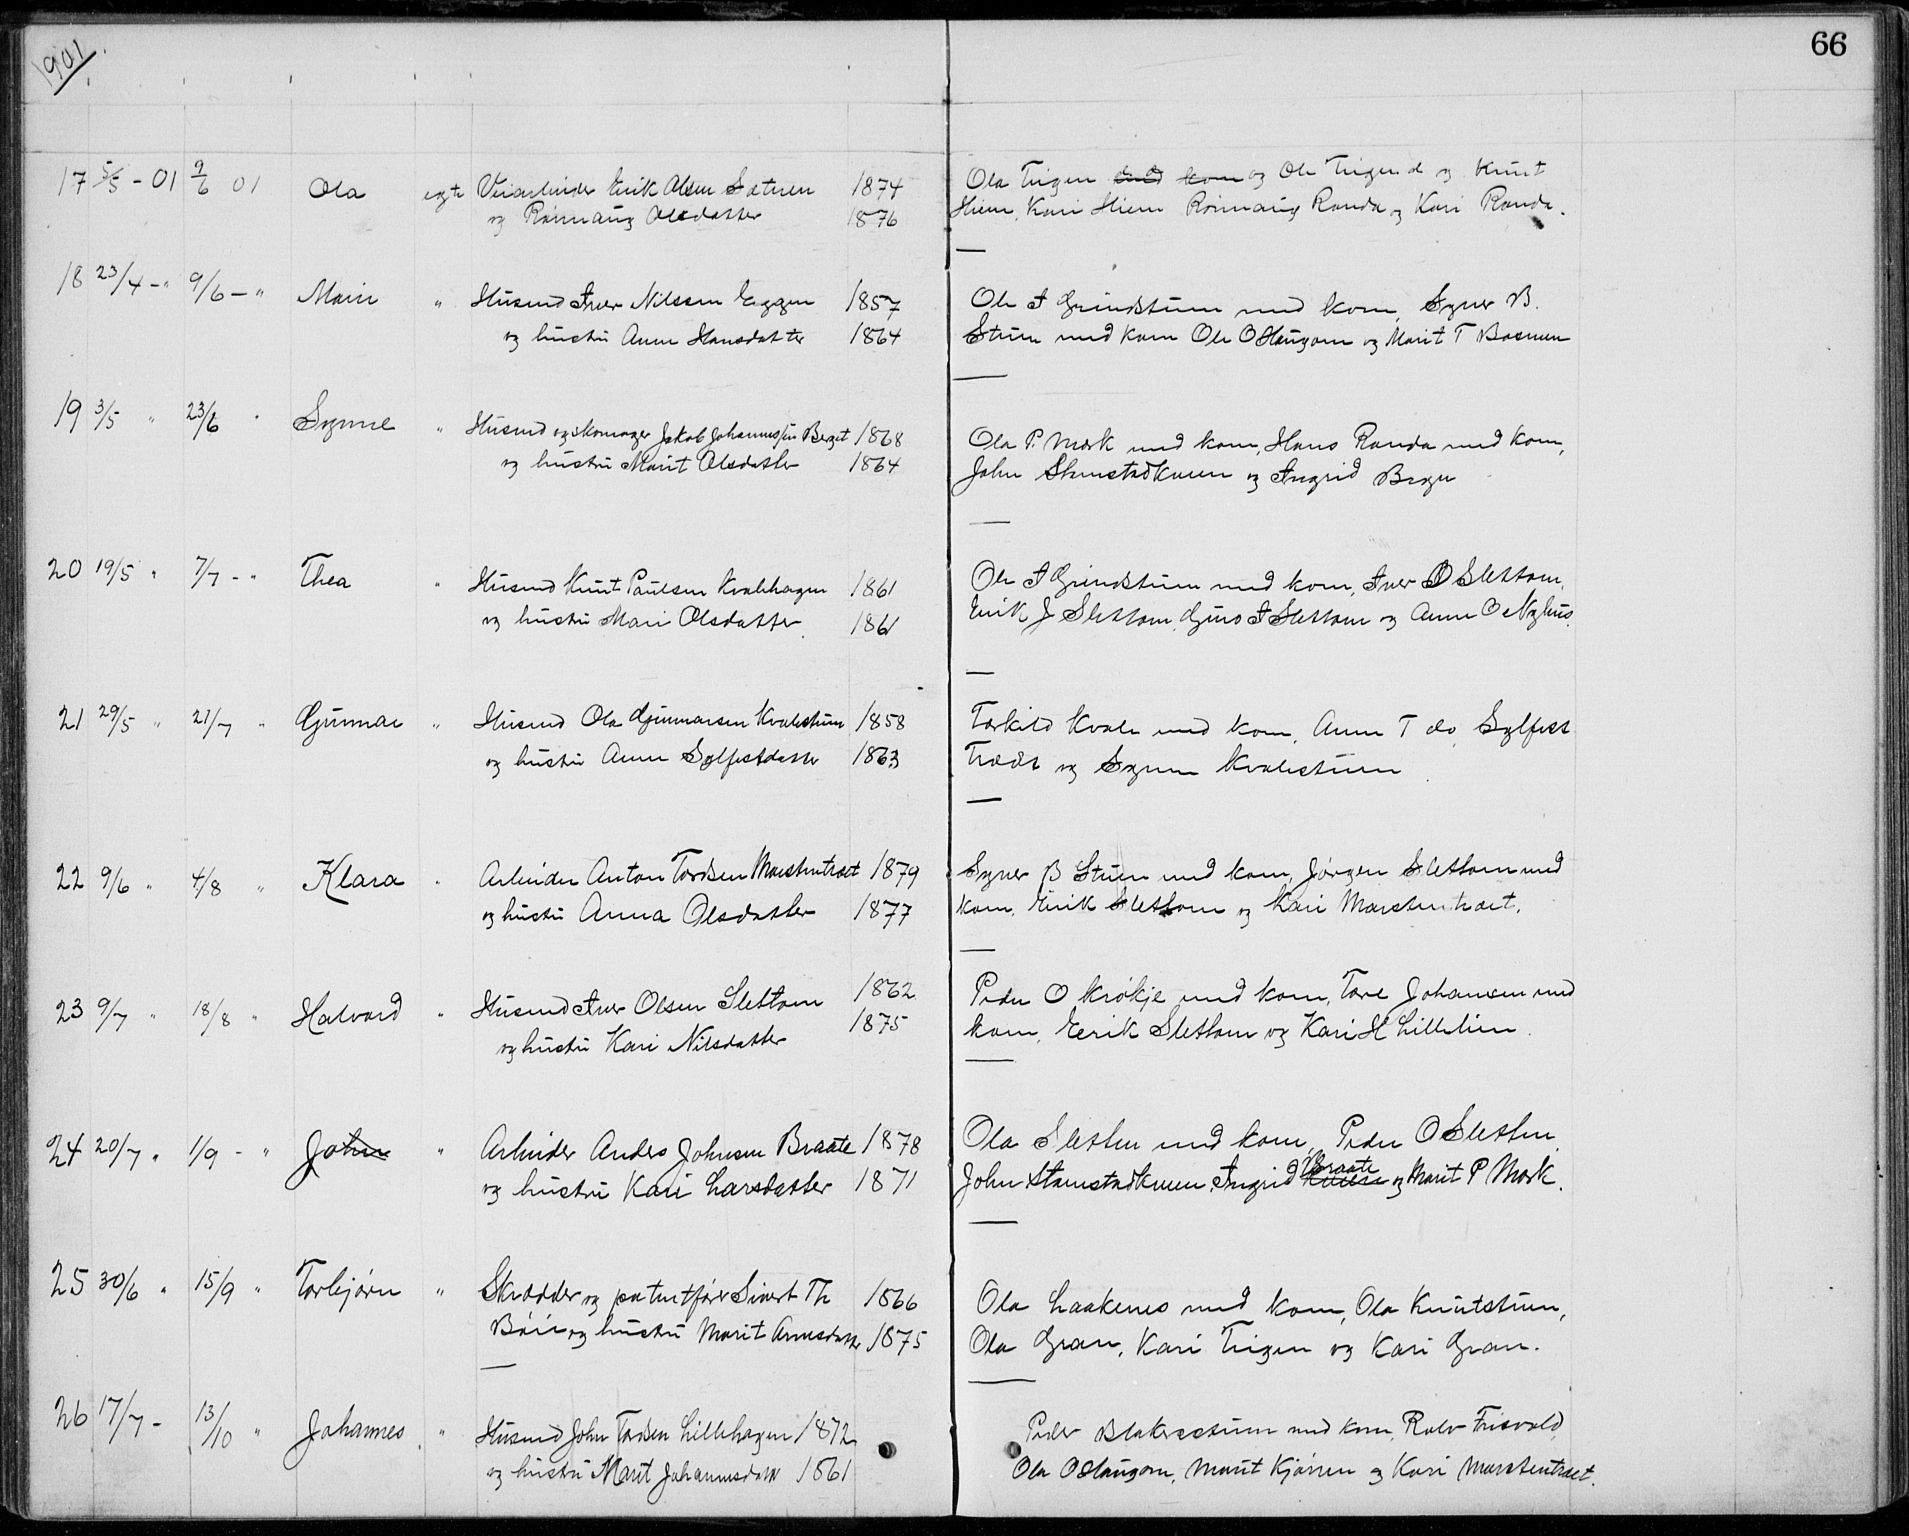 1901.
66
17 5/5 - 01 9/6 01 Ola egte Veiarbeider Erik Olsen Sætren 1874 Ola Tigen med kom og Ole Tigen d og Knut
og Rønnaug Olsdatter 1876 Hiem, Kari Hiem Rønnaug Randa og Kari Randa.
18 23/4 - " 9/6 - " Mari " Husmd Iver Nilssen Eggen 1857 Ole I Grindstuen med kom, Syver B.
og hustru Anne Hansdatter 1864 Stuen med kom Ole O Haugom og Marit T Bosmoen
19 3/5 " 23/6 " Synne " Husmd og skomager Jakob Johannessen Berget 1868 Ola P. Mork med kom, Hans Randa med kom,
og hustru Marit Olsdatter 1864 John Stamstadkveen og Ingrid
20 19/5 " 7/7 - " Thea " Husmd Knut Paulsen Kvalehagen 1861 Ole I Grindstuen med kom, Iver O Slettom,
og hustru Mari Olsdatter 1861 Erik J Slettom, Guro I Slettom og Anne O Nyhus.
21 29/5 " 21/7 " Gunnar " Husmd Ola Gunnarsen Kvalestuen 1858 Torkild Kvale med kom, Anne T do, Sylfest
og hustru Anne Sylfestdatter 1863 Træde og Synne Kvalestuen
22 9/6 " 4/8 " Klara " Arbeider Anton Tordsen Marstentræet 1879 Syver B Stuen med kom, Jørgen Slettom med
og hustru Anna Olsdatter 1877 kom, Erik Slettom og Kari Marstentræet.
23 9/7 " 18/8 " Halvard " Husmd Iver Olsen Slettom 1862 Peder O Krøkje med kom, Tore Johansen med
og hustru Kari Nilsdatter 1875 kom, Erik Slettom og Kari H Lillelien.
24 20/7 " 1/9 - " John " Arbeider Anders Johnsen Braate 1878 Ola Sletten med kom, Peder O Sletten
og hustru Kari Larsdatter 1871 John Stamstadkveen, Ingrid Kveen Braate og Marit P Mork.
25 30/6 " 15/9 " Torbjørn " Skrædder og patentfører Sivert Th 1866 Ola Laakenes med kom, Ola Knutstuen,
Bøie og hustru Marit Arnesdatter 1875 Ola Gran, Kari Tigen og Kari Gran.
26 17/7 - 13/10 " Johannes " Husmd John Tordsen Lillehagen 1872 Peder Blakerstuen med kom, Rolv Frisvold,
og hustru Marit Johannesdatter 1861 Ola O Haugom, Marit Kjørren og Kari Marstentræet.